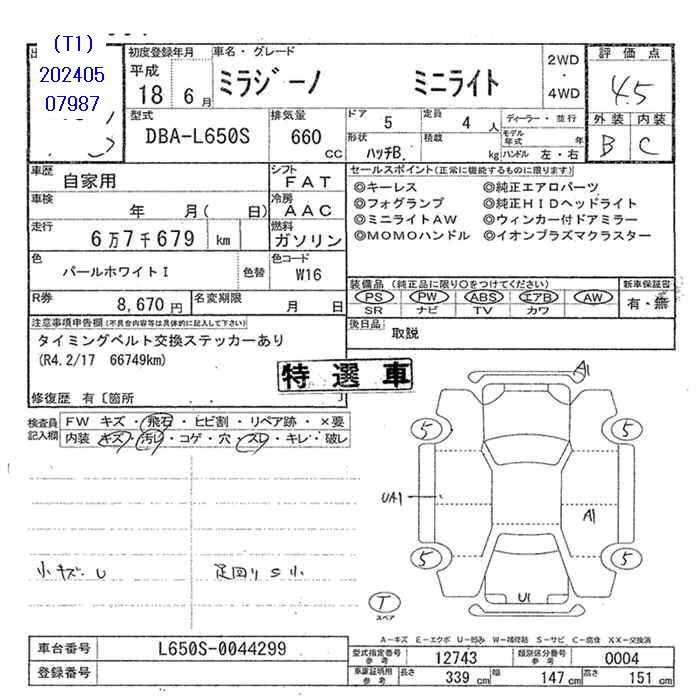 (T1)
202405
07987
初度登録年月
平成
18 6月
車名・グレード
ミラジーノ ミニライト
2WD
・
4WD
評価点
4.5
外装 内装
B C
型式
DBA-L650S
排気量
660
CC
ドア
5
定員
4人
ディーラー・並行
モデル年式 年
形状
ハッチB.
積載
kg
ハンドル 左・右
車歴
自家用
シフト
FAT
車検
年 月( 日)
冷房
AAC
走行
6万7千679 km
燃料
ガソリン
色
パールホワイトI
色替
色コード
W16
R券
8,670円
名変期限
月 日
セールスポイント(正常に機能するものに限ります)
◎キーレス ◎純正エアロパーツ
◎フォグランプ ◎純正HIDヘッドライト
◎ミニライトAW ◎ウィンカー付ドアミラー
◎MOMOハンドル ◎イオンプラズマクラスター
装備品(純正品に限り○をつけてください)
PS PW ABS エアB AW
SR ナビ TV カワ
新車保証書
有・無
後日品
取説
注意事項申告欄(不具合内容等は具体的に記入して下さい)
タイミングベルト交換ステッカーあり
(R4.2/17 66749km)
修復歴 有〔箇所 〕
特選車
検査員
記入欄
FW キズ・飛石・ヒビ割・リペア跡・×要
内装 キズ・汚レ・コゲ・穴・ズレ・キレ・破レ
A1
5 5
UA1
A1
5 5
U1
T
スペア
小キズ.U 足回りS小
A-キズ E-エクボ U-凹み W-補修跡 S-サビ C-腐食 XX-交換済
車台番号
L650S-0044299
登録番号
型式指定番号
参考
12743
類別区分番号
参考
0004
車庫証明用
参考
長さ 339 cm 幅 147 cm 高さ 151 cm